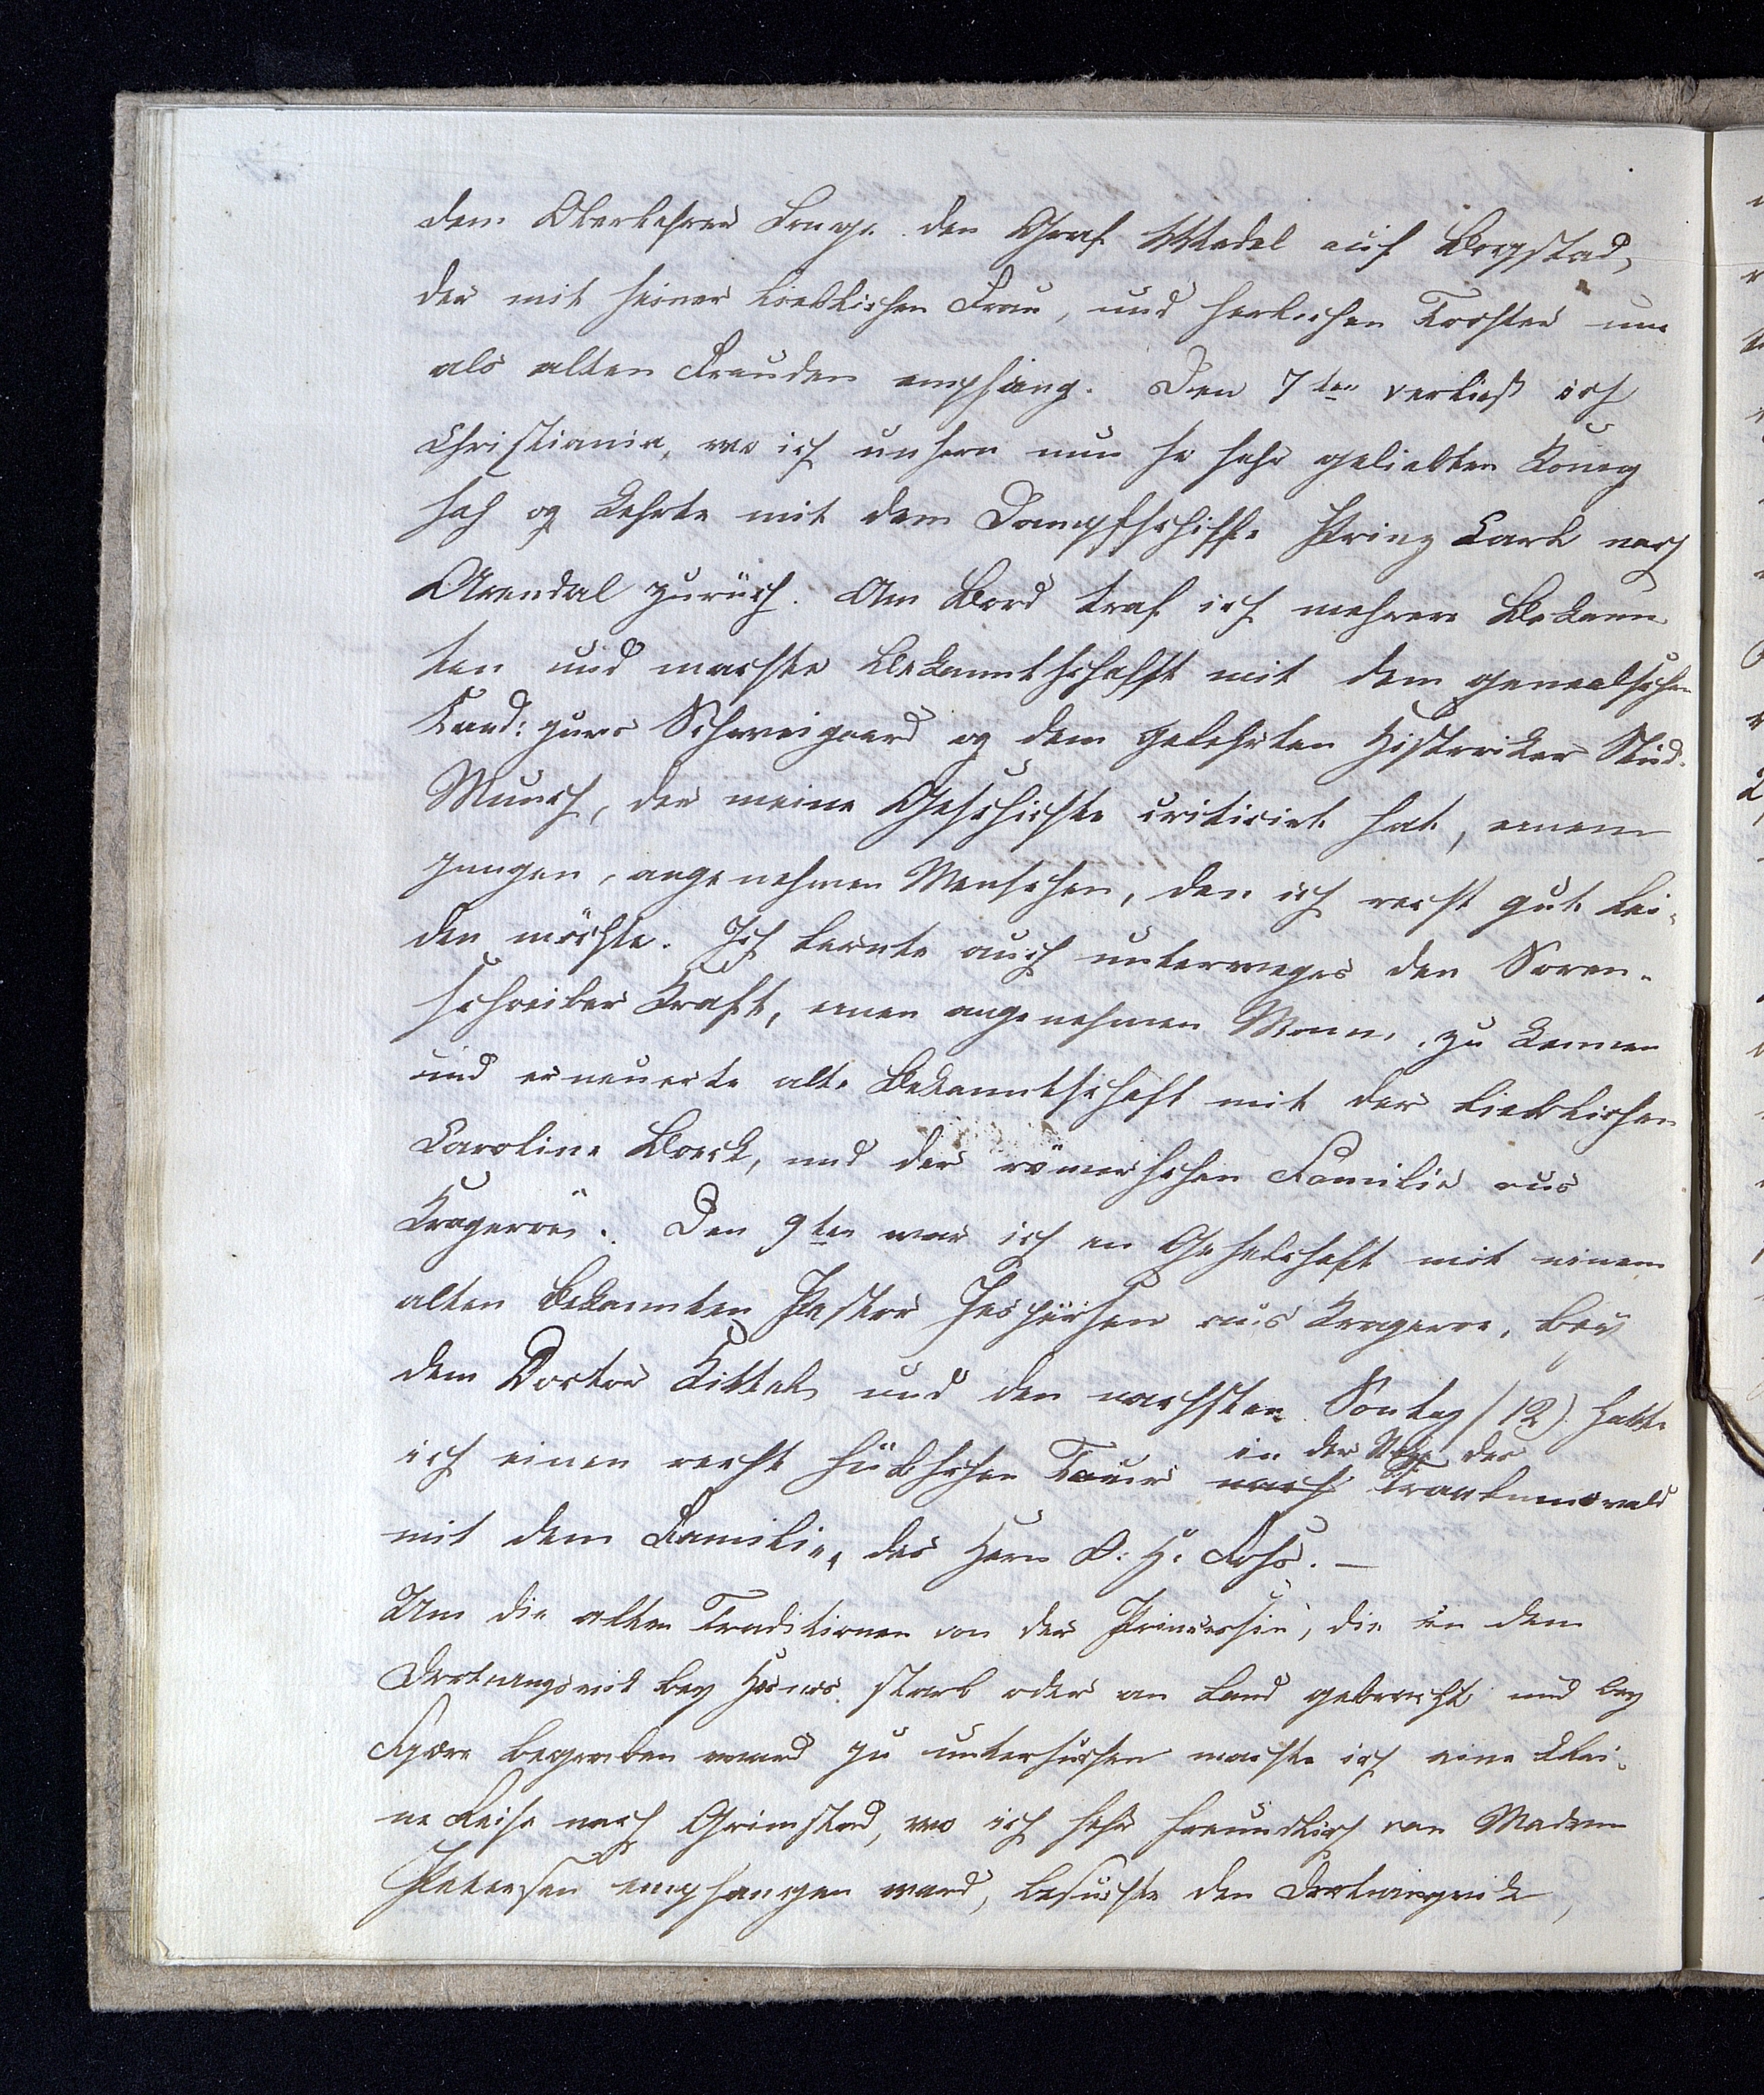 dem Oberlehrer Lange. den Graf Wedel auf Bogstad,
der mit seiner lieblichen Frau, und herlichen Tochter uns
als alten Freuden empfang. Den 7ten verließ ich
Christiania, wo ich unsern nun so sehr geliebten König
sah og kehrte mit dem Dampfschiffe Prinz Carl nach
Arendal zurück. Am Bord traf ich mehrere Bekann
ten und machte Bekanntschafft mit dem genialschen
Cand: jures Schweigaard og dem gelehrten Historiker Stud.
Munch, der meine Geschichte criticirt hat, einem
jungen, angenehmen Menschen, den ich recht gut lei-
den möchte. Ich lernte auch unterweges den Soren-
schreiber Kraft, einen angenehmen Mann, zu kennen
und erneuerte alte Bekanntschaft mit der lieblichen
Caroline Boeck, und der römerschen Familie aus
Krageröe. Den 9ten war ich en Geselschaft mit einem
alten Bekannten Pastor Jespersen aus Krageroe, bey
dem Doctor Kittel und den nachsten Sontag (12). hatte
ich einen recht hübschen Tour nach in der Nähe des
mit dem Familie, des Herrn O. H.
Um die alten Traditionen von der Princessin, die in dem
bey starb oder an Land gebracht und bey
Fjære begraben ward zu untersuchen machte ich eine klei-
ne Reise nach Grimstad, wo ich sehr freundlich von Madam
Petersen empfangen ward, besuchte den